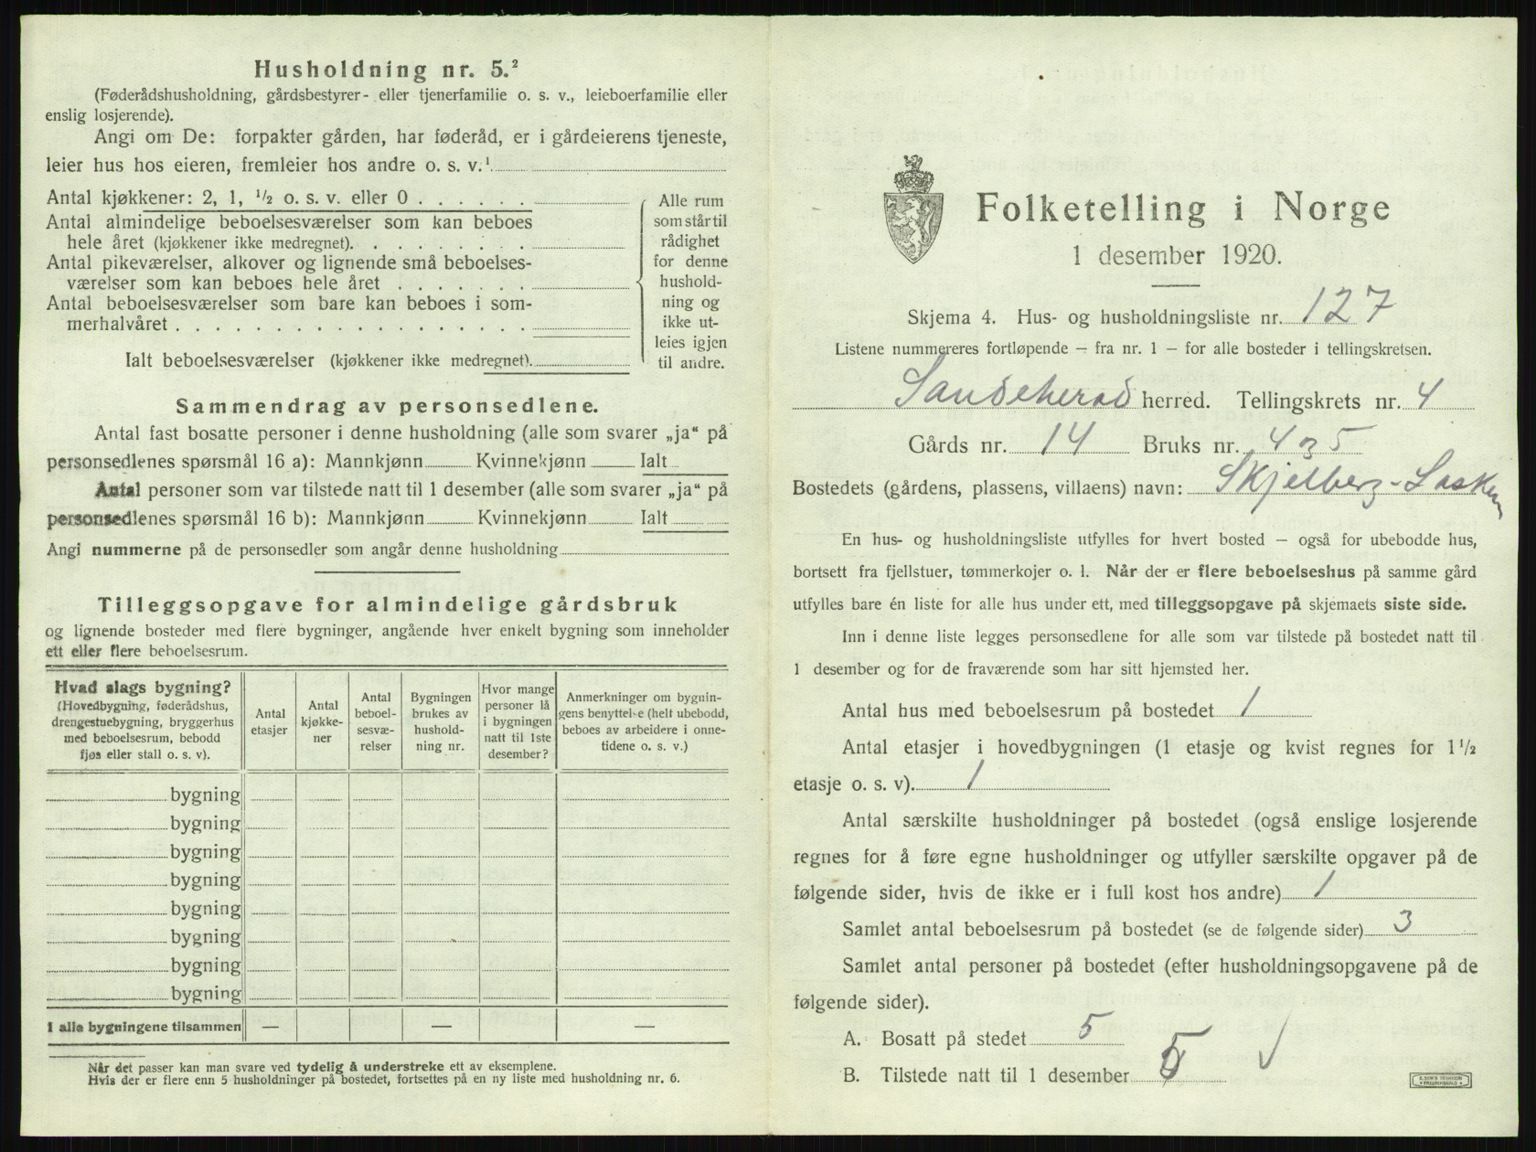 Husholdning nr. 5.²
(Føderådshusholdning, gårdsbestyrer- eller tjenerfamilie o. s. v., leieboerfamilie eller
enslig losjerende).
Angi om De: forpakter gården, har føderåd, er i gårdeierens tjeneste,
leier hus hos eieren, fremleier hos andre o. s. v.¹
Antal kjøkkener: 2, 1, ½ o. s. v. eller 0 . . . . . .
Antal almindelige beboelsesværelser som kan beboes
hele året (kjøkkener ikke medregnet). . . . . . . . .
Antal pikeværelser, alkover og lignende små beboelses-
værelser som kan beboes hele året . . . . . . .
Antal beboelsesværelser som bare kan beboes i som-
merhalvåret . . . . . . . . . . . . . . . . . .
Ialt beboelsesværelser (kjøkkener ikke medregnet).
Alle rum
som står til
rådighet
for denne
hushold-
ning og
ikke ut-
leies igjen
til andre.
Sammendrag av personsedlene.
Antal fast bosatte personer i denne husholdning (alle som svarer „ja“ på
personsedlenes spørsmål 16 a): Mannkjønn Kvinnekjønn Ialt
Antal personer som var tilstede natt til 1 desember (alle som svarer „ja“ på
personsedlenes spørsmål 16 b): Mannkjønn Kvinnekjønn Ialt
Angi nummerne på de personsedler som angår denne husholdning
Tilleggsopgave for almindelige gårdsbruk
og lignende bosteder med flere bygninger, angående hver enkelt bygning som inneholder
ett eller flere beboelsesrum.
Hvad slags bygning?
(Hovedbygning, føderådshus,
drengestuebygning, bryggerhus
med beboelsesrum, bebodd
fjøs eller stall o. s. v).
Antal
etasjer
Antal
kjøkke-
ner
Antal
beboel-
sesvæ-
relser
Bygningen
brukes av
hushold-
ning nr.
Hvor mange
personer lå
i bygningen
natt til 1ste
desember?
Anmerkninger om bygnin-
gens benyttelse (helt ubebodd,
beboes av arbeidere i onne-
tidene o. s. v.)
bygning
bygning
bygning
bygning
bygning
bygning
bygning
bygning
I alle bygningene tilsammen — — —
¹ Når det passer kan man svare ved tydelig å understreke ett av eksemplene.
² Hvis der er flere enn 5 husholdninger på bostedet, fortsettes på en ny liste med husholdning nr. 6.
Folketelling i Norge
1 desember 1920.
Skjema 4. Hus- og husholdningsliste nr. 127
Listene nummereres fortløpende — fra nr. 1 — for alle bosteder i tellingskretsen.
Sandeherad herred. Tellingskrets nr. 4
Gårds nr. 14 Bruks nr. 4 35
Bostedets (gårdens, plassens, villaens) navn: Skjelberg-Lasken
En hus- og husholdningsliste utfylles for hvert bosted — også for ubebodde hus,
bortsett fra fjellstuer, tømmerkojer o. l. Når der er flere beboelseshus på samme gård
utfylles bare én liste for alle hus under ett, med tilleggsopgave på skjemaets siste side.
Inn i denne liste legges personsedlene for alle som var tilstede på bostedet natt til
1 desember og for de fraværende som har sitt hjemsted her.
Antal hus med beboelsesrum på bostedet 1
Antal etasjer i hovedbygningen (1 etasje og kvist regnes for 1½
etasje o. s. v). 1
Antal særskilte husholdninger på bostedet (også enslige losjerende
regnes for å føre egne husholdninger og utfyller særskilte opgaver på de
følgende sider, hvis de ikke er i full kost hos andre) 1
Samlet antal beboelsesrum på bostedet (se de følgende sider) 3
Samlet antal personer på bostedet (efter husholdningsopgavene på de
følgende sider).
A. Bosatt på stedet 5
B. Tilstede natt til 1 desember 5 √